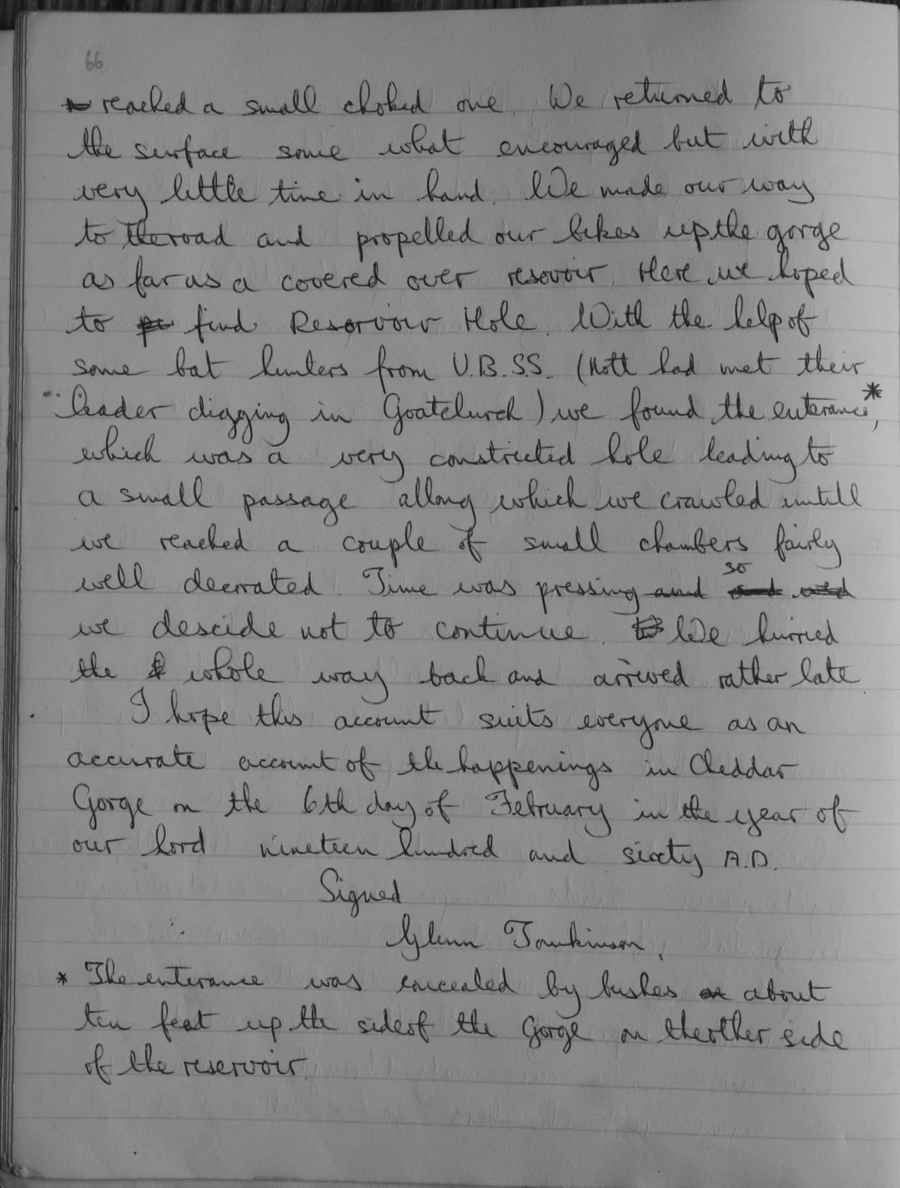 66
reached a small choked one. We returned to
the surface some what encouraged but with
very little time in hand. We made our way
to the road and propelled our bikes up the gorge
as far as a covered over resovoir. Here we hoped
to find Reservoir Hole. With the help of
some bat hunters from U.B.S.S. (Mott had met their
leader digging in Goatchurch) we found the enterance*,
which was a very constricted hole leading to
a small passage allong which we crawled untill
we reached a couple of small chambers fairly
well decorated. Time was pressing so
we descide not to continue. We hurried
the whole way back and arrived rather late.
I hope this account suits everyone as an
accurate account of the happenings in Cheddar
Gorge on the 6th day of February in the year of
our lord nineteen hundred and sixty A.D.
Signed
Glenn Tomkinson,
* The enterance was concealed by bushes about
ten feet up the side of the Gorge on the other side
of the reservoir.